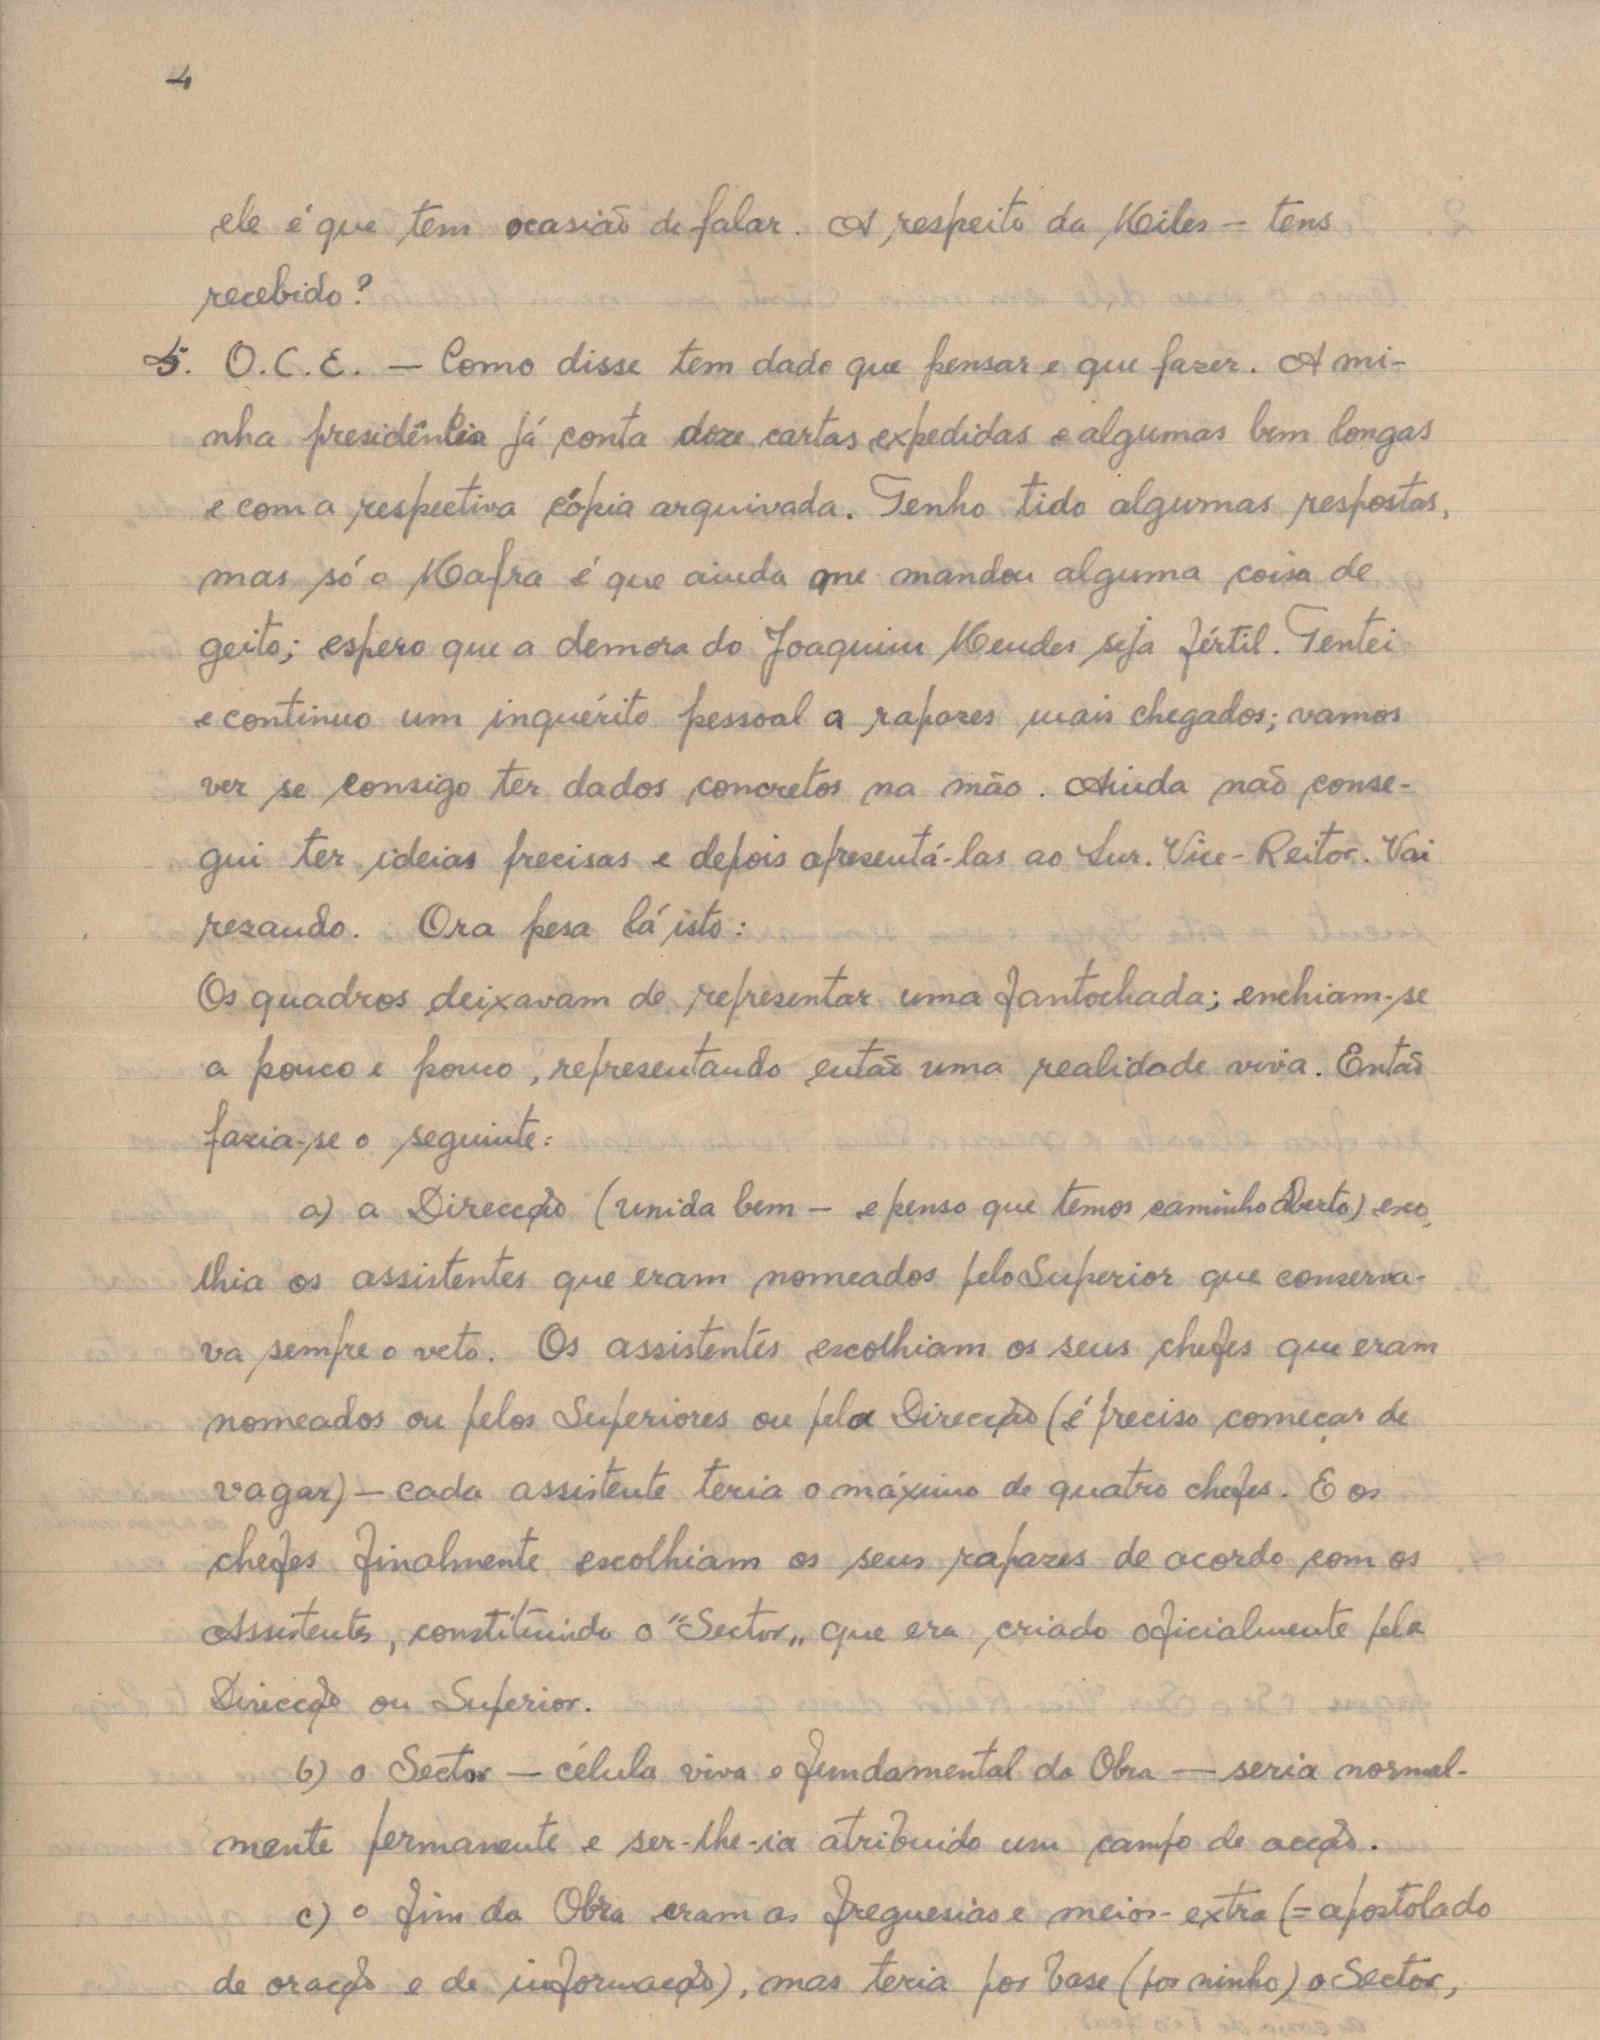 4
ele é que tem ocasião de falar. A respeito da Miles – tens
recebido?
5. O.C.E. – Como disse tem dado que pensar e que fazer. A mi-
nha presidência já conta doze cartas expedidas e algumas bem longas
e com a respectiva cópia arquivada. Tenho tido algumas respostas,
mas só o Mafra é que ainda me mandou alguma coisa de
geito; espero que a demora do Joaquim Mendes seja fértil. Tentei
e continuo um inquérito pessoal a rapazes mais chegados; vamos
ver se consigo ter dados concretos na mão. Ainda não conse-
gui ter ideias precisas e depois apresentá-las ao Snr. Vice-Reitor. Vai
rezando. Ora pesa lá isto:
Os quadros deixavam de representar uma fantochada; enchiam-se
a pouco e pouco, representando então uma realidade viva. Então
fazia-se o seguinte:
a) a Direcção (unida bem – e penso que temos caminho aberto) esco-
lhia os assistentes que eram nomeados pelo Superior que conserva-
va sempre o veto. Os assistentes escolhiam os seus chefes que eram
nomeados ou pelos Superiores ou pela Direcção (é preciso começar de
vagar) – cada assistente teria o máximo de quatro chefes. E os
chefes finalmente escolhiam os seus rapazes de acordo com os
Assistentes, constituindo o "Sector„ que era criado oficialmente pela
Direcção ou Superior.
b) o Sector – célula viva e fundamental da Obra – seria normal-
mente permanente e ser-lhe-ia atribuido um campo de acção.
c) o fim da Obra eram as freguesias e meios-extra (= apostolado
de oração e de informação), mas teria por base (por ninho) o Sector,